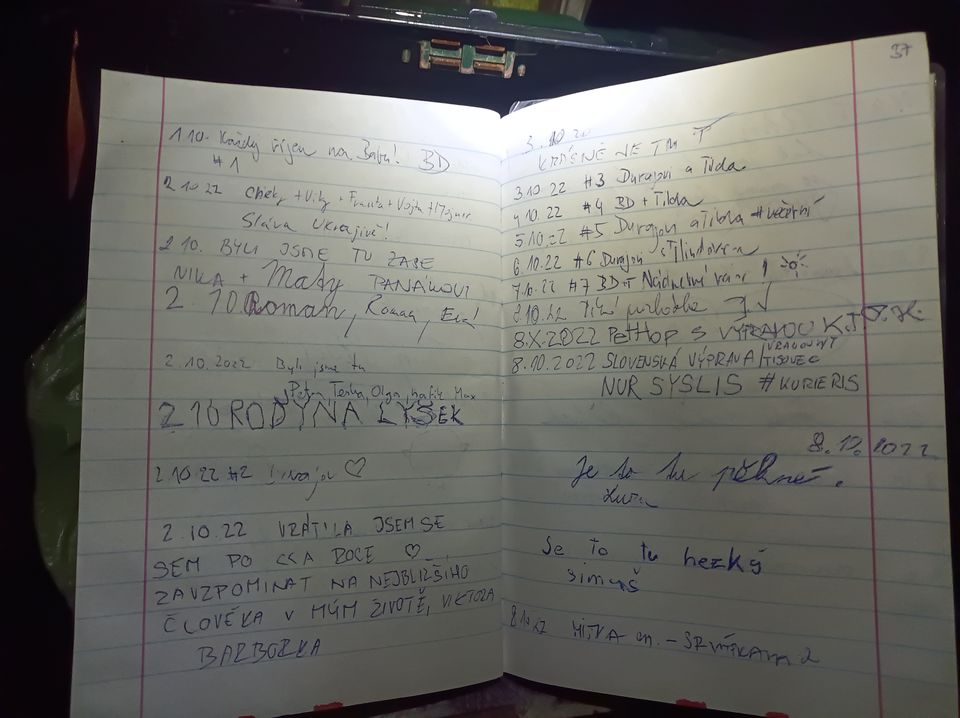 1.10. Každý říjen na Babu! BD
#1
2.10.22 Cheky + Vity + Franta + Vojta +
Sláva Ukrajině!
2.10. BYLI JSME TU ZASE
NIKA + Maty PANÁKOVI
2.10 Roman, Roman, Eva!
2.10.2022 Byli jsme tu
Petra, Terka, Olga, hafík Max
2 10 RODYNA LYSEK
2.10.22 #2 ♡
2.10.22 VRÁTILA JSEM SE
SEM PO CCA ROCE ♡
ZAVZPOMINAT NA NEJBLIŽŠÍHO
ČLOVĚKA V MÝM ŽIVOTĚ, VIKTORA
BARBORKA
37
3.10.20
KRÁSNĚ JE TU
3.10.22 #3 Durajon a Tilda
4.10.22 #4 BD + Tilda
5.10.22 #5 Durajon a Tilda #večerní
6.10.22 #6 Durajon s
7.10.22 #7 BD + Nádherné ráno!
8.X.2022 PetHop S VÝPRAVOU K.T.
8.10.2022 SLOVENSKÁ VÝPRAVA TISOVEC
NUR SYSLIS #KURIERIS
8.10.2022
Je to tu pěkné.
Je to tu hezký
Šimuš
8.10.22